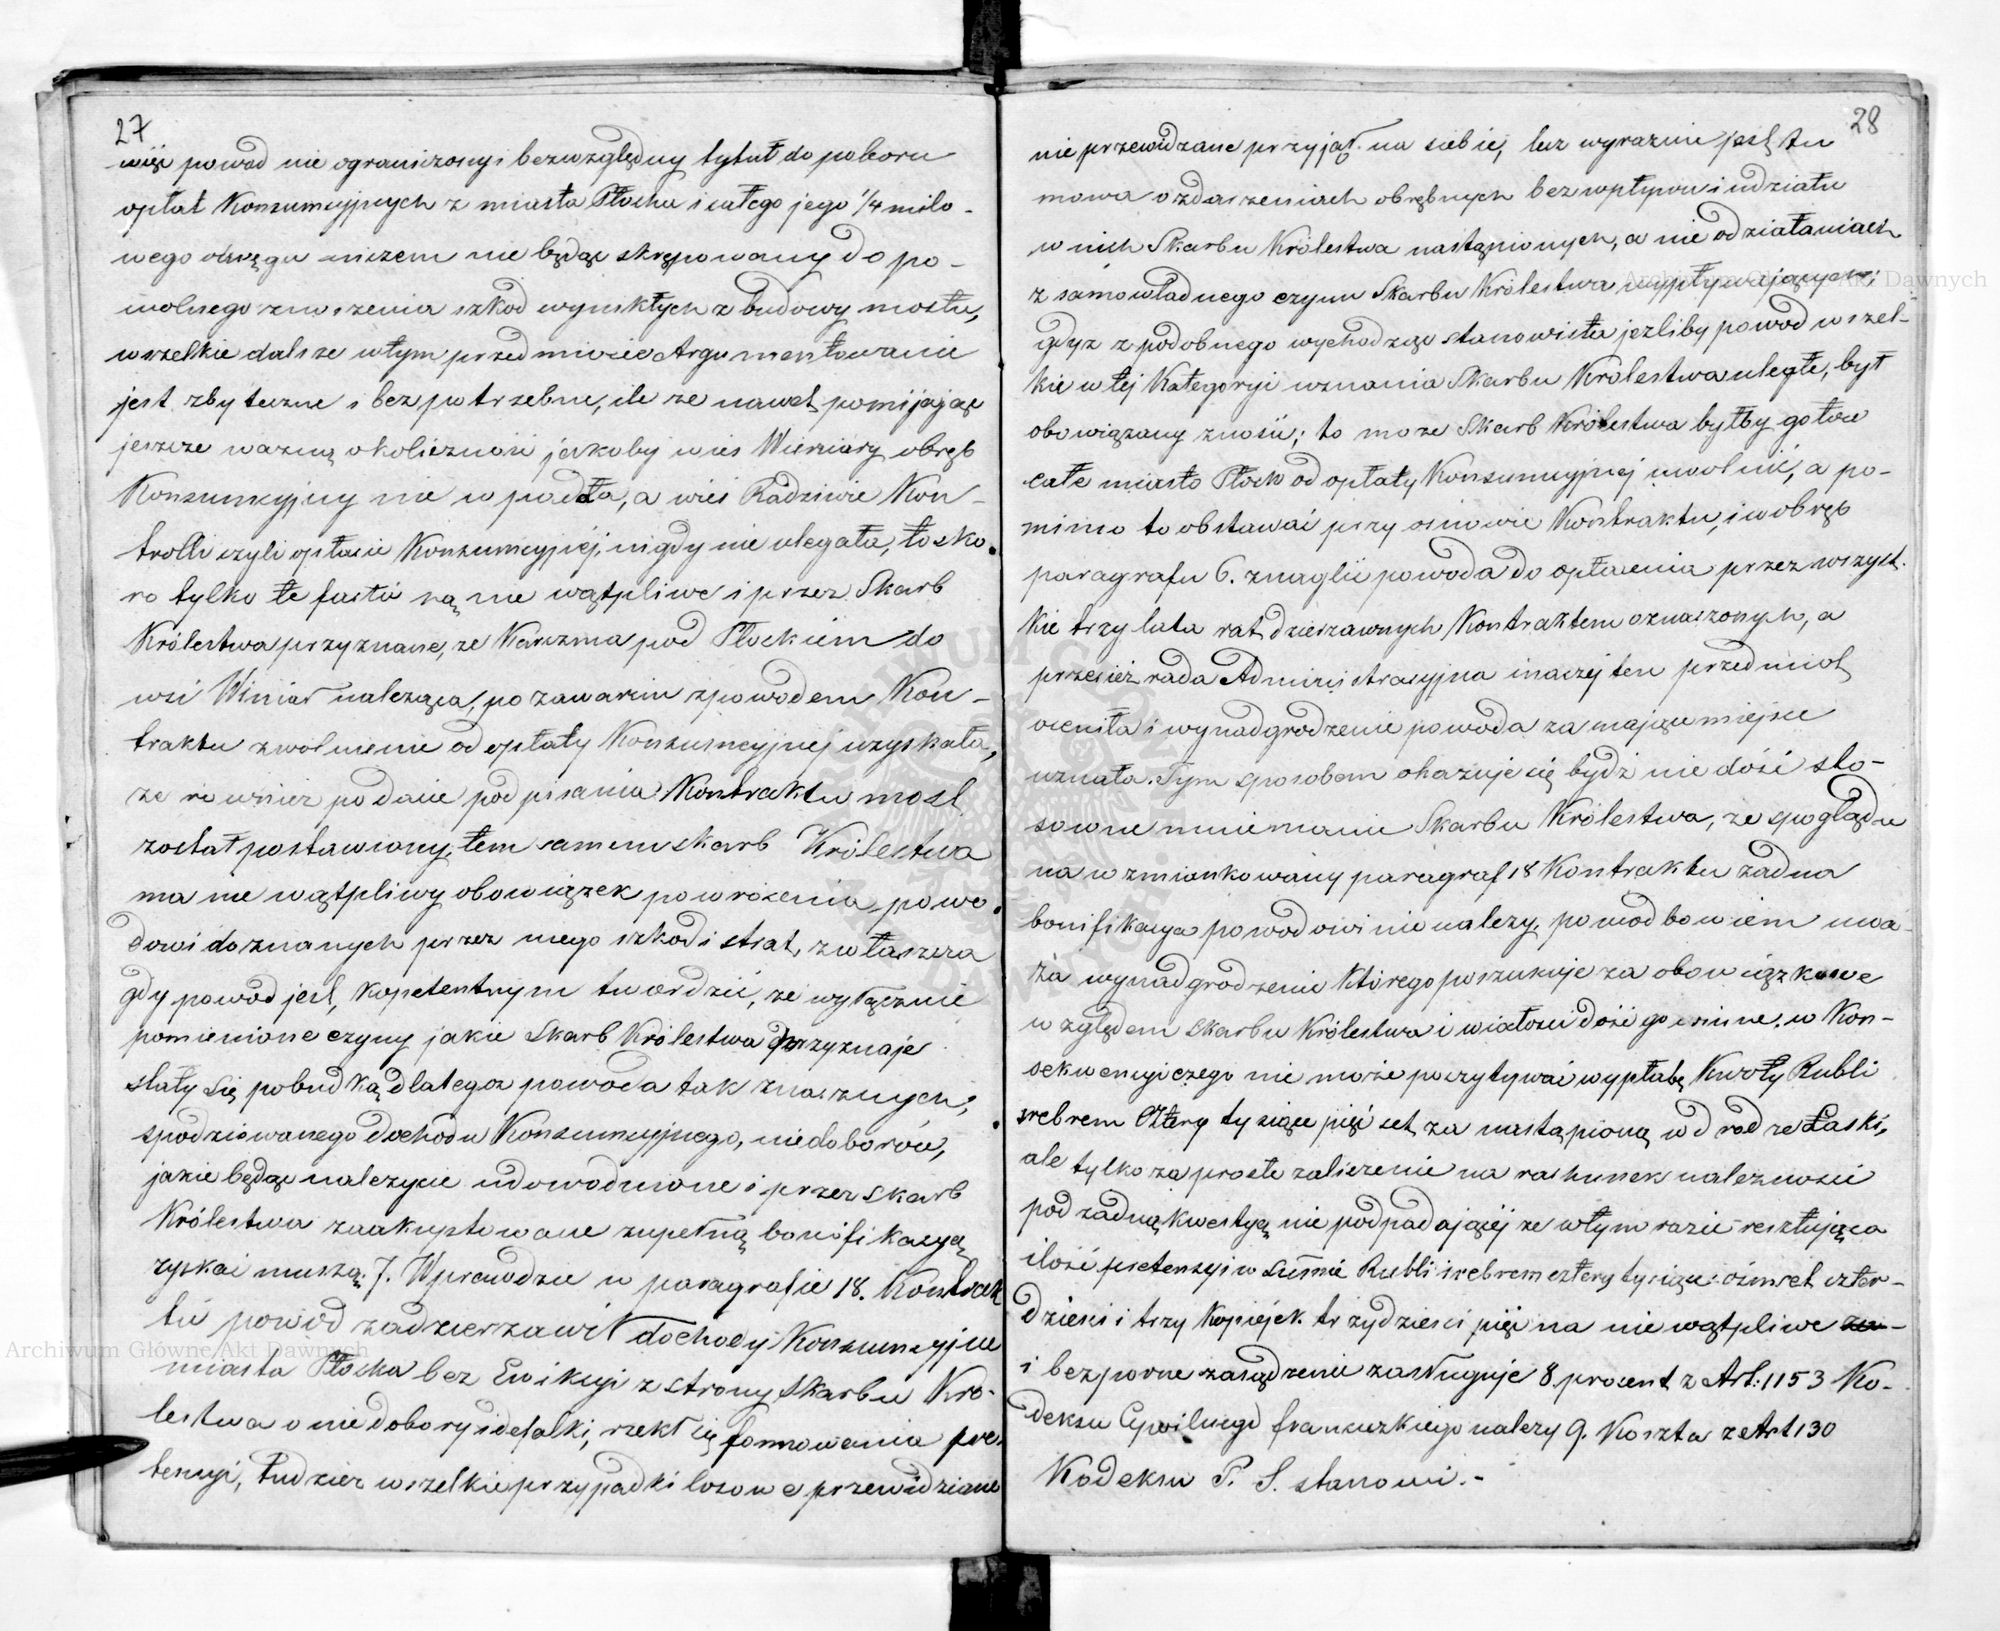 27
więc powod nie ograniczony i bezwzględny tytuł do poboru
opłat Konsumcyjnych z miasta Płocka i całego jego 1/4 milo-
wego okręgu niczem nie będąc skrępowany do po-
wolnego znoszenia szkod wynikłych z budowy mostu,
wszelkie dalsze w tym przedmiocie Argumentowanie
jest zbyteczne i bezpotrzebne, ile ze nawet pomijając
jeszcze wazną okoliczność jakoby wieś Winiary obręb
Konsumcyjny nie wpadła, a wieś Radziwie Kon-
trolli czyli opłacie Konsumcyjnej nigdy nie ulegała, to sko-
ro tylko te facta są nie wątpliwe i przez Skarb
Królestwa przyznane, ze Karczma pod Płockiem do
wsi Winiar naleząca, po zawarciu z powodem Kon-
traktu zwolnienie od opłaty Konsumcyjnej uzyskała,
ze rownież po dacie podpisania Kontraktu most
został postawiony, tem samem skarb Królestwa
ma nie wątpliwy obowiązek powrócenia powo-
dowi doznanych przez niego szkod i strat, zwłaszcza
gdy powod jest kopetentnym twierdzić, ze wyłącznie
pomienione czyny jakie Skarb Królestwa przyznaje
stały się pobudką dlategoz powoda tak znacznych,
spodziewanego dochodu Konsumcyjnego, niedoborów,
jakie będąc nalezycie udowodnione i przez skarb
Królestwa zaakceptowane zupełną bonifikacyą
zyskać muszą. 7. Wprawdzie w paragrafie 18. Kontrak
tu powod zadzierzawił dochody Konsumcyjne
miasta Płocka bez Ewikcyi z strony Skarbu Kró-
lestwa o niedobory i defalki, rzekł się formowania pre-
tensyi, tudziez wszelkie przypadki losowe przewidziane
28
nie przewidzane przyjął na siebie, lecz wyraznie jest tu
mowa o zdarzeniach obrębnych bez wpływu i udziału
w nich Skarbu Królestwa nastąpionych, a nie o działaniach
z samowładnego czynu Skarbu Królestwa wypływających;
gdyz z podobnego wychodząc stanowiska jezliby powod wszel-
kie w tej Kategoryi uznania Skarbu Królestwa uległe, był
obowiązany znosić; to moze Skarb Królestwa byłby gotow
całe miasto Płock od opłaty Konsumcyjnej uwolnić, a po-
mimo to obstawać przy osnowie Kontraktu, i w obręb
paragrafu 6. znaglić powoda do opłacenia przez wszyst-
kie trzy lata rat dzierzawnych Kontraktem oznaczonych, a
przecież rada Administracyjna inaczej ten przedmiot
oceniła i wynadgrodzenie powoda za mające miejsce
uznała. Tym sposobem okazuje się bydź nie dość sto-
sowne mniemanie Skarbu Królestwa, ze z poglądu
na wzmiankowany paragraf 18 Kontraktu zadna
bonifikacya powodowi nie nalezy, powod bowiem uwa-
ża wynadgrodzenie którego poszukuje za obowiązkowe
względem skarbu Królestwa i w całości dość go winne, w Kon-
sekwencyi czego nie może poczytywać wypłatę Kwoty Rubli
srebrem Cztery tysiące pięć set za nastąpioną w drodze Łaski,
ale tylko za proste zaliczenie na rachunek nalezności
pod zadną kwestyą nie podpadającej ze w tym razie resztująca
ilość pretensyi w summie Rubli srebrem cztery tysiące ośmset czter-
dzieści i trzy Kopiejek trzydzieści pięć na nie wątpliwe za-
i bezsporne zasądzenie zasługuje 8. procent z Art: 1153 Ko-
deksu Cywilnego francuzkiego nalezy 9. Koszta z Art 130
Kodeksu P. S. stanowi.-
Archiwum Główne Akt Dawnych